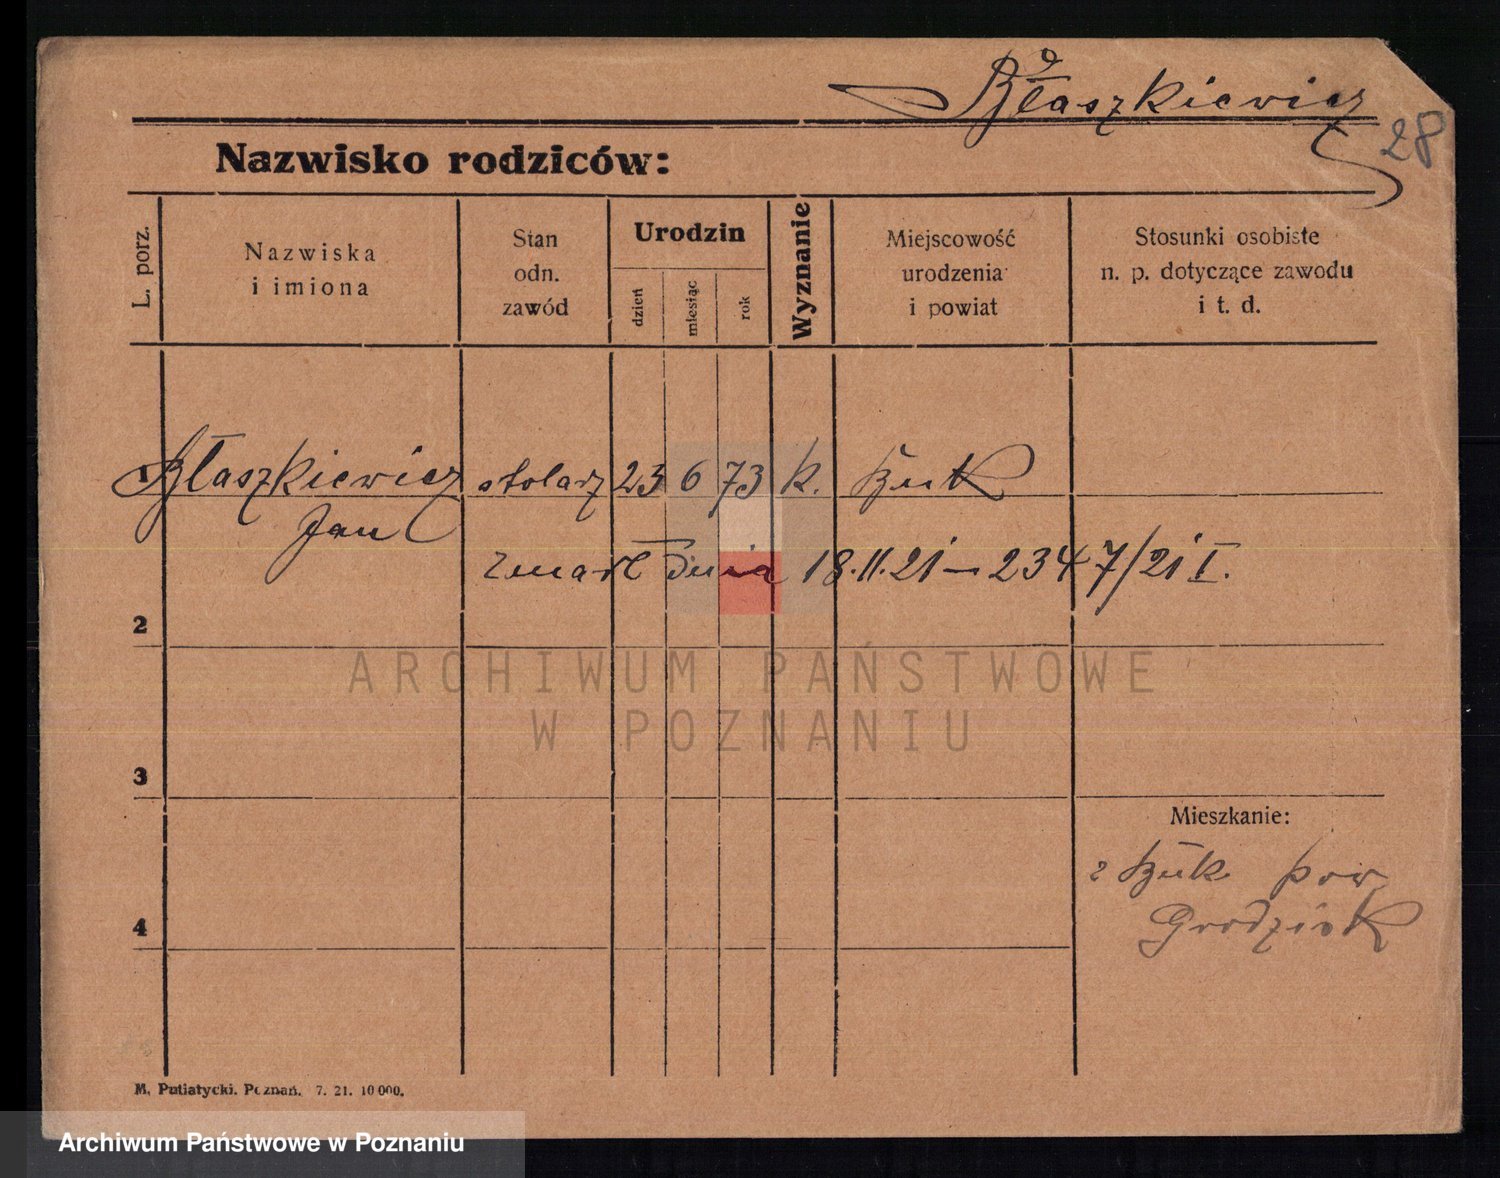 Błaszkiewicz
28
Nazwisko rodziców:
L. porz.
Nazwiska
i imiona
Stan
odn.
zawód
Urodzin
dzień
miesiąc
rok
Wyznanie
Miejscowość
urodzenia
i powiat
Stosunki osobiste
n. p. dotyczące zawodu
i t. d.
1 Błaszkiewicz stolarz 23 6 73 k. Buk
Jan
zmarł dnia 18.11.21 – 2347/21 I.
2
ARCHIWUM PAŃSTWOWE
W POZNANIU
3
Mieszkanie:
z Buk pow
4
Grodzisk
M. Putiatycki. Poznań. 7. 21. 10 000.
Archiwum Państwowe w Poznaniu